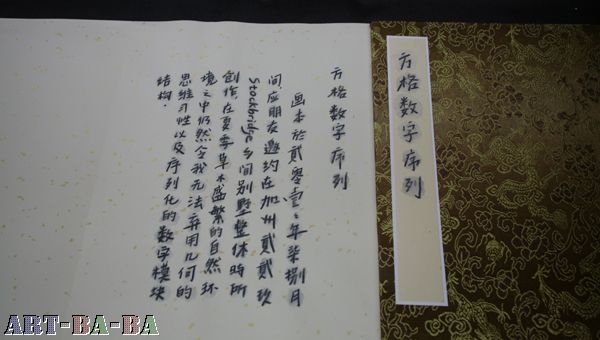 方格数字序列
方格数字序列
画本於贰零壹壹年柒捌月
间,应朋友邀约在加州贰贰玖
Stockbridge乡间别墅整休时所
创作,在夏季草木盛繁的自然环
境之中仍然令我无法弃用几何的
思维习性以及序列化的数字模块
结构.
ART-BA-BA